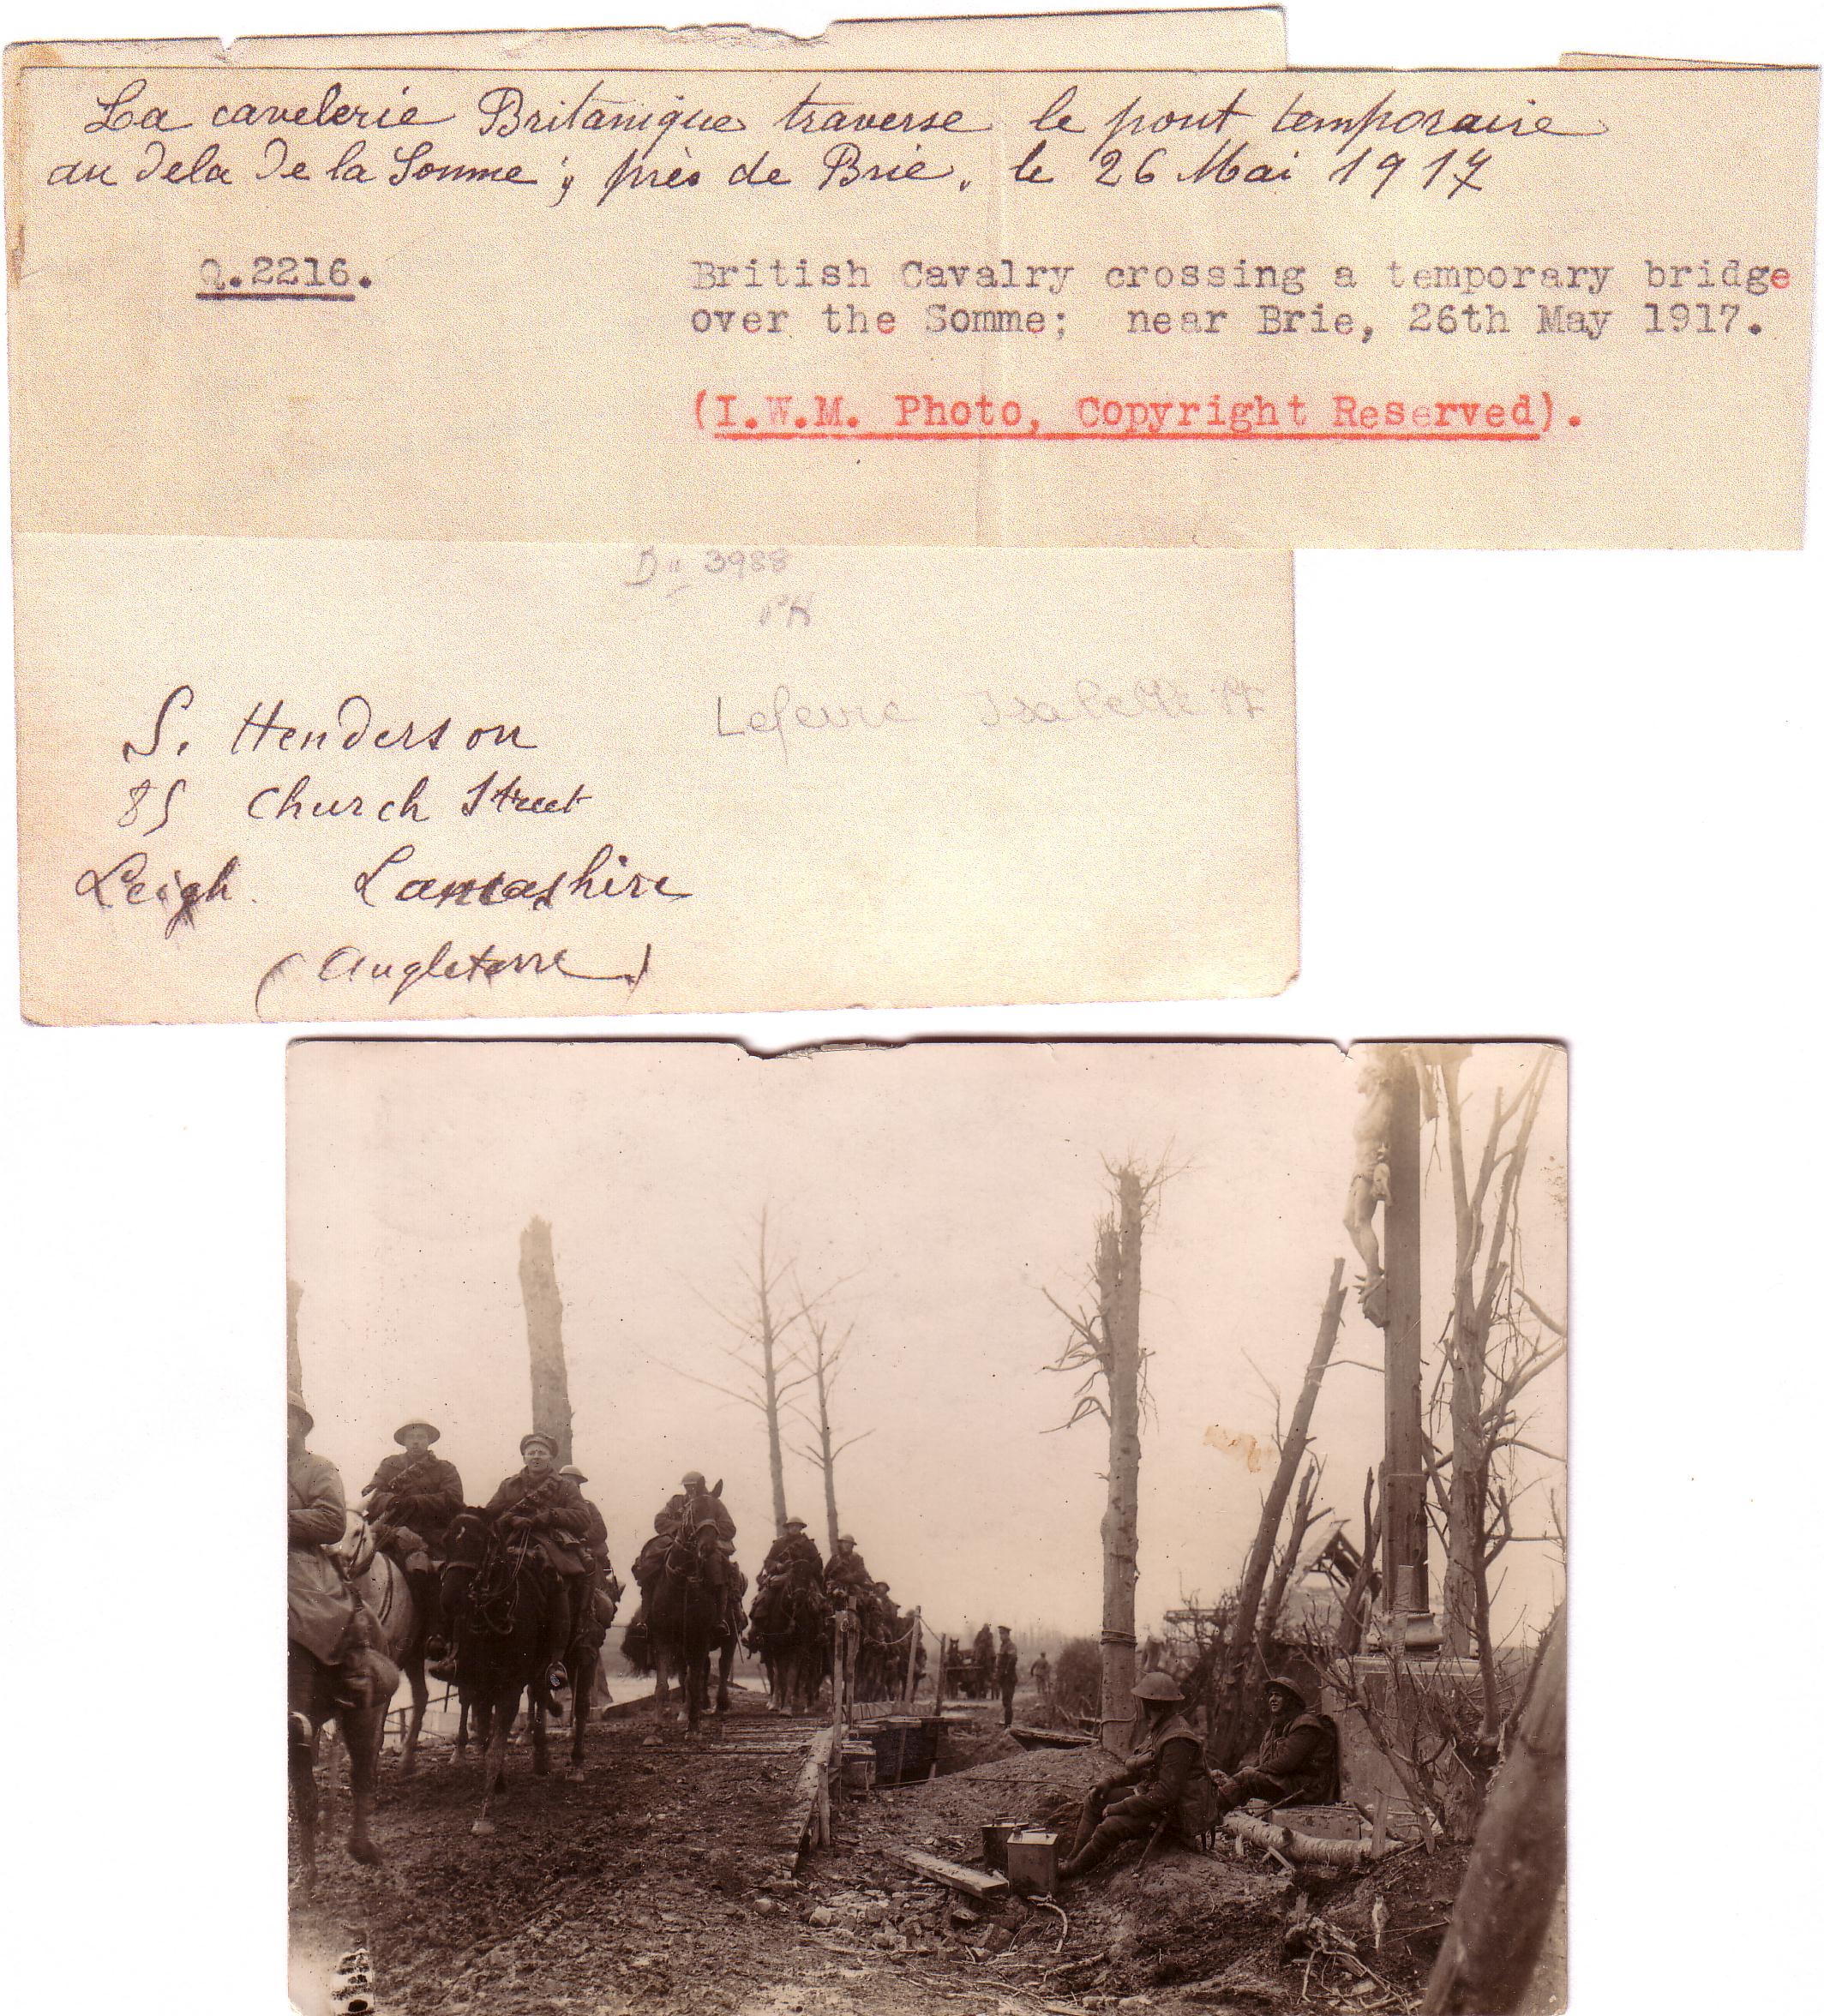 La cavelerie Britanique traverse le pont temporaire
au dela de la Somme ; près de Brie. le 26 Mai 1917
Q.2216.
British Cavalry crossing a temporary bridge
over the Somme; near Brie, 26th May 1917.
(I.W.M. Photo, Copyright Reserved).
D 3988
S. Henderson
85 Church Street
Leigh. Lancashire
(Angleterre)
Lefevre Isabelle